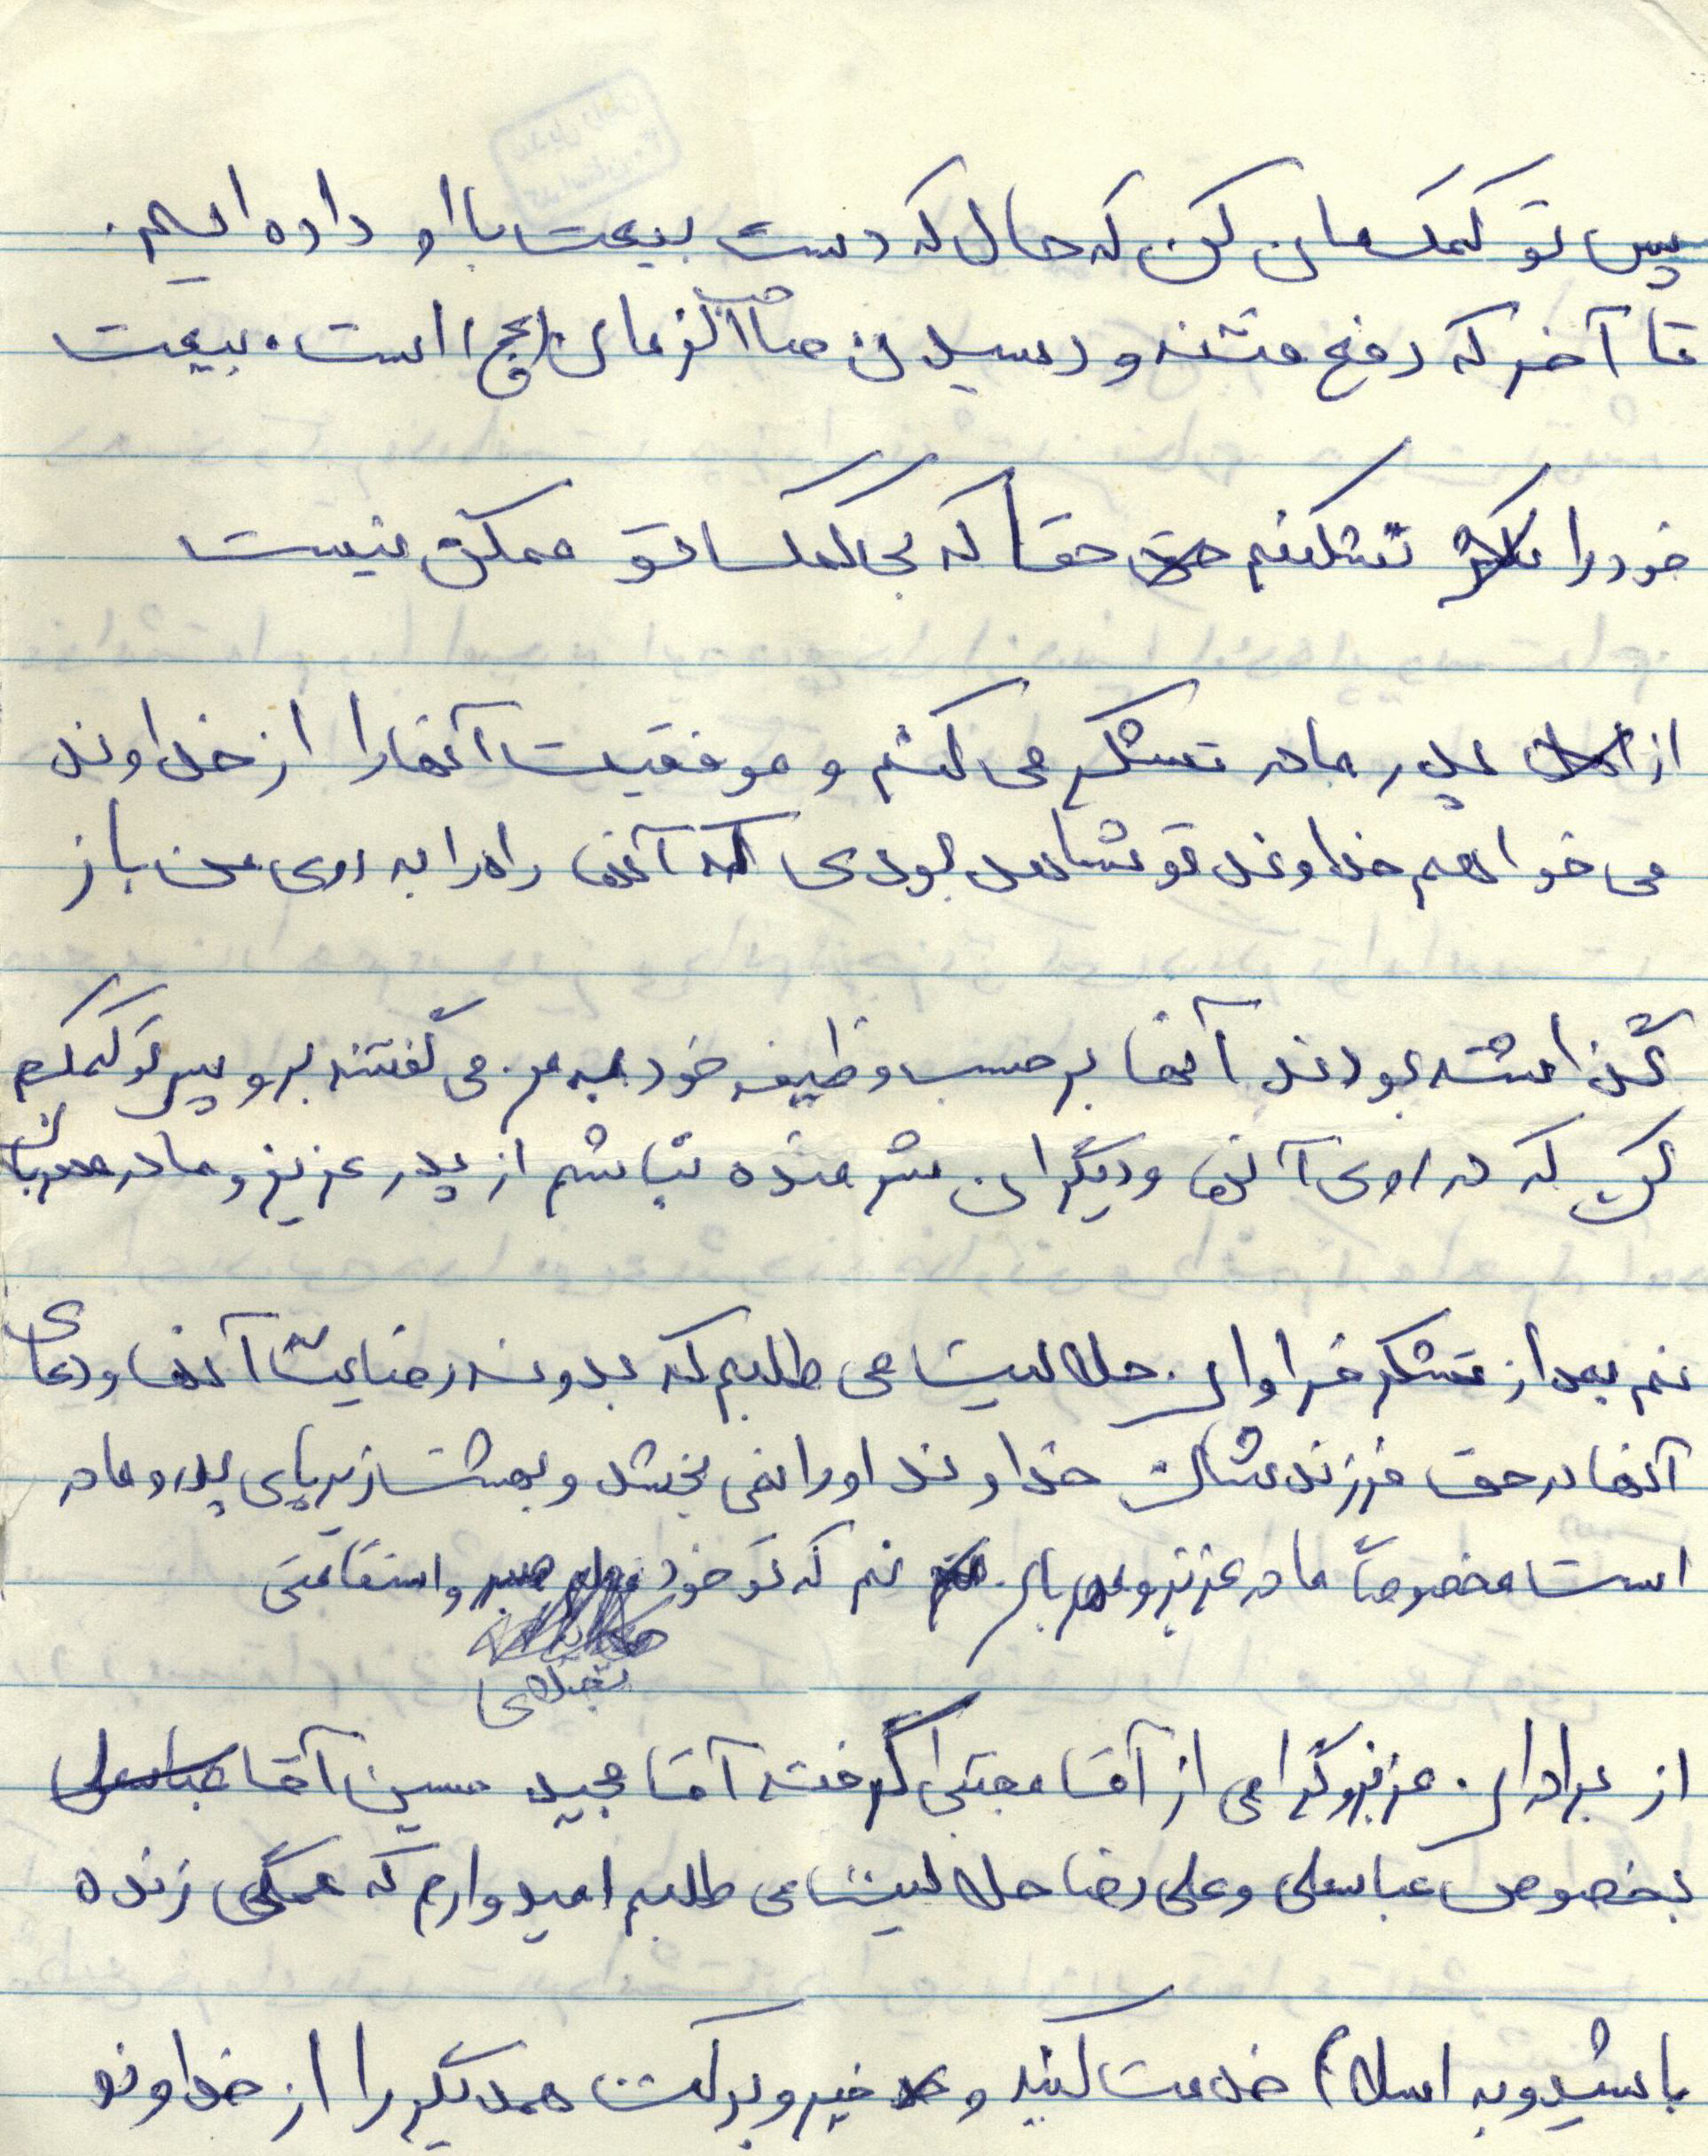 پس تو کمکمان کن که حال که دست بیعت با او داده ایم.
تا آخر که رفع فتنه و رسیدن صاحب الزمان (عج) است. بیعت
خود را نشکنیم حقا که بی کمک تو ممکن نیست
از پدر مادر تشکر می کنم و موفقیت آنها را از خداوند
می خواهم خداوند تو شاهد بودی که آنها راه را به روی من باز
گذاشته بودند آنها بر حسب وظیفه خود به من می گفتند برو پس تو کمکم
کن که در روی آنها و دیگران شرمنده نباشم از پدر عزیز و مادر مهربان
نم بعد از تشکر فراوان حلالیت می طلبم که بدون رضایت آنها و دعای
آنها در حق فرزندشان خداوند او را نمی بخشد و بهشت زیر پای پدر و مادر
است مخصوصاً مادر عزیز و مهربان نم که تو خود صبر و استقامتی
نمی دهی
از برادران عزیز و گرامی از آقا مجتبی گرفته آقا مجید حسین آقا عباسعلی
بخصوص عباسعلی و علی رضا حلالیت می طلبم امیدوارم که همگی زنده
باشید و به اسلام خدمت کنید و خیر و برکت همدیگر را از خداوند